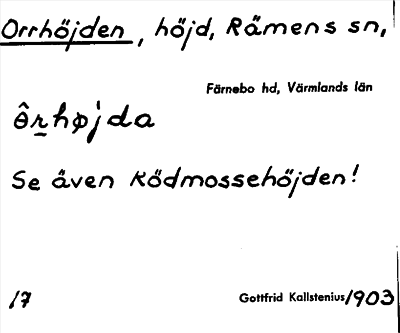 Orrhöjden, höjd, Rämens sn,
Färnebo hd, Värmlands län
ö̂rhøjda
Se även Ködmossehöjden!
17 Gottfrid Kallstenius 1903